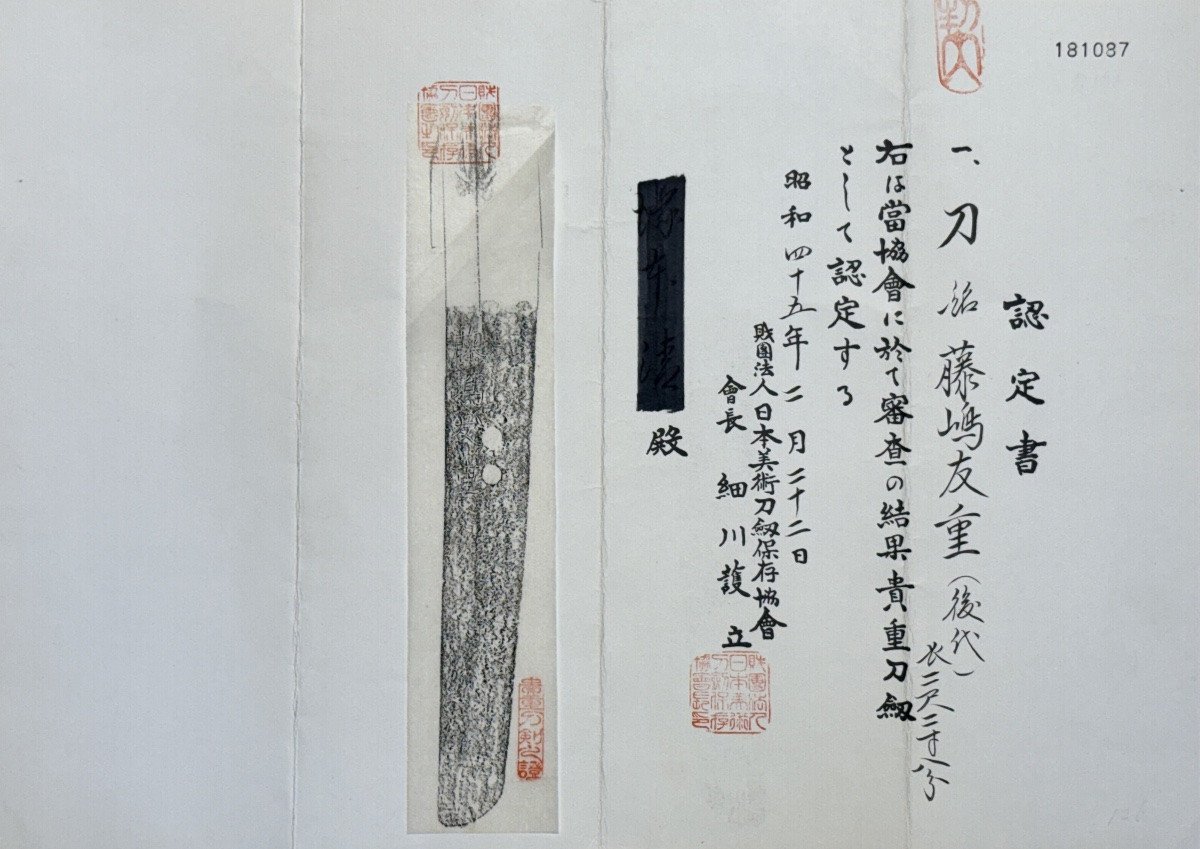 181087
認定書
一、刀 銘 藤嶋友重（後代）
長二尺二寸八分
右は當協會に於て審査の結果貴重刀劔
として認定する
昭和四十五年二月二十二日
財團法人日本美術刀劔保存協會
會長 細川護立
殿